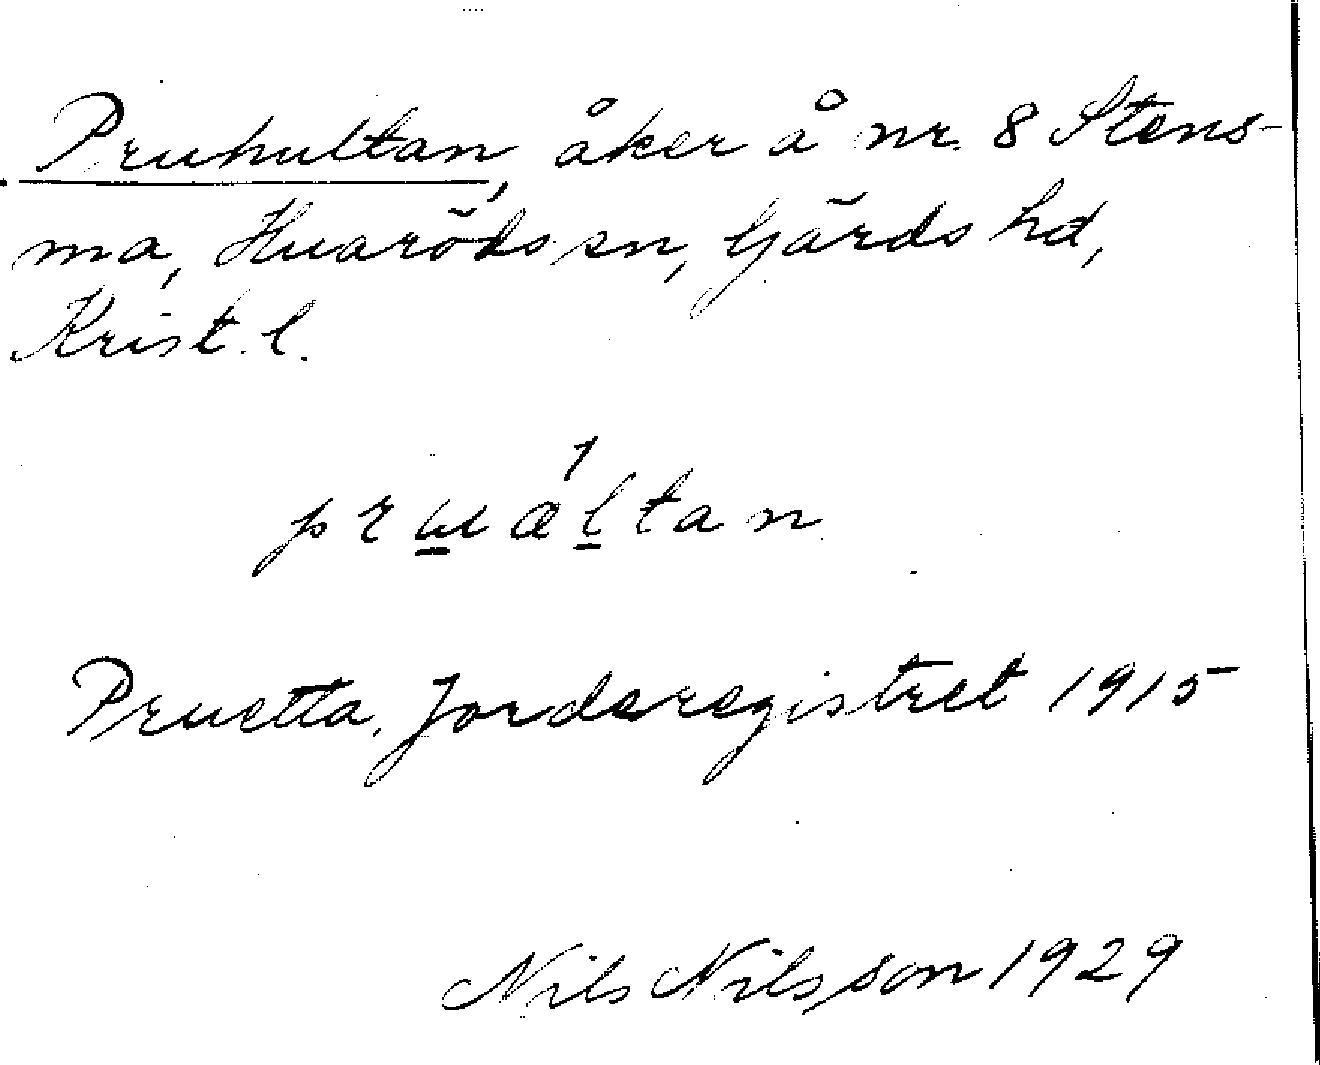 Pruhultan, åker å nr. 8 Stens-
ma, Huaröds sn, Gärds hd,
Krist. l.
prɯæĺtan
Pruetta, Jorderegistret 1915
Nils Nilsson 1929